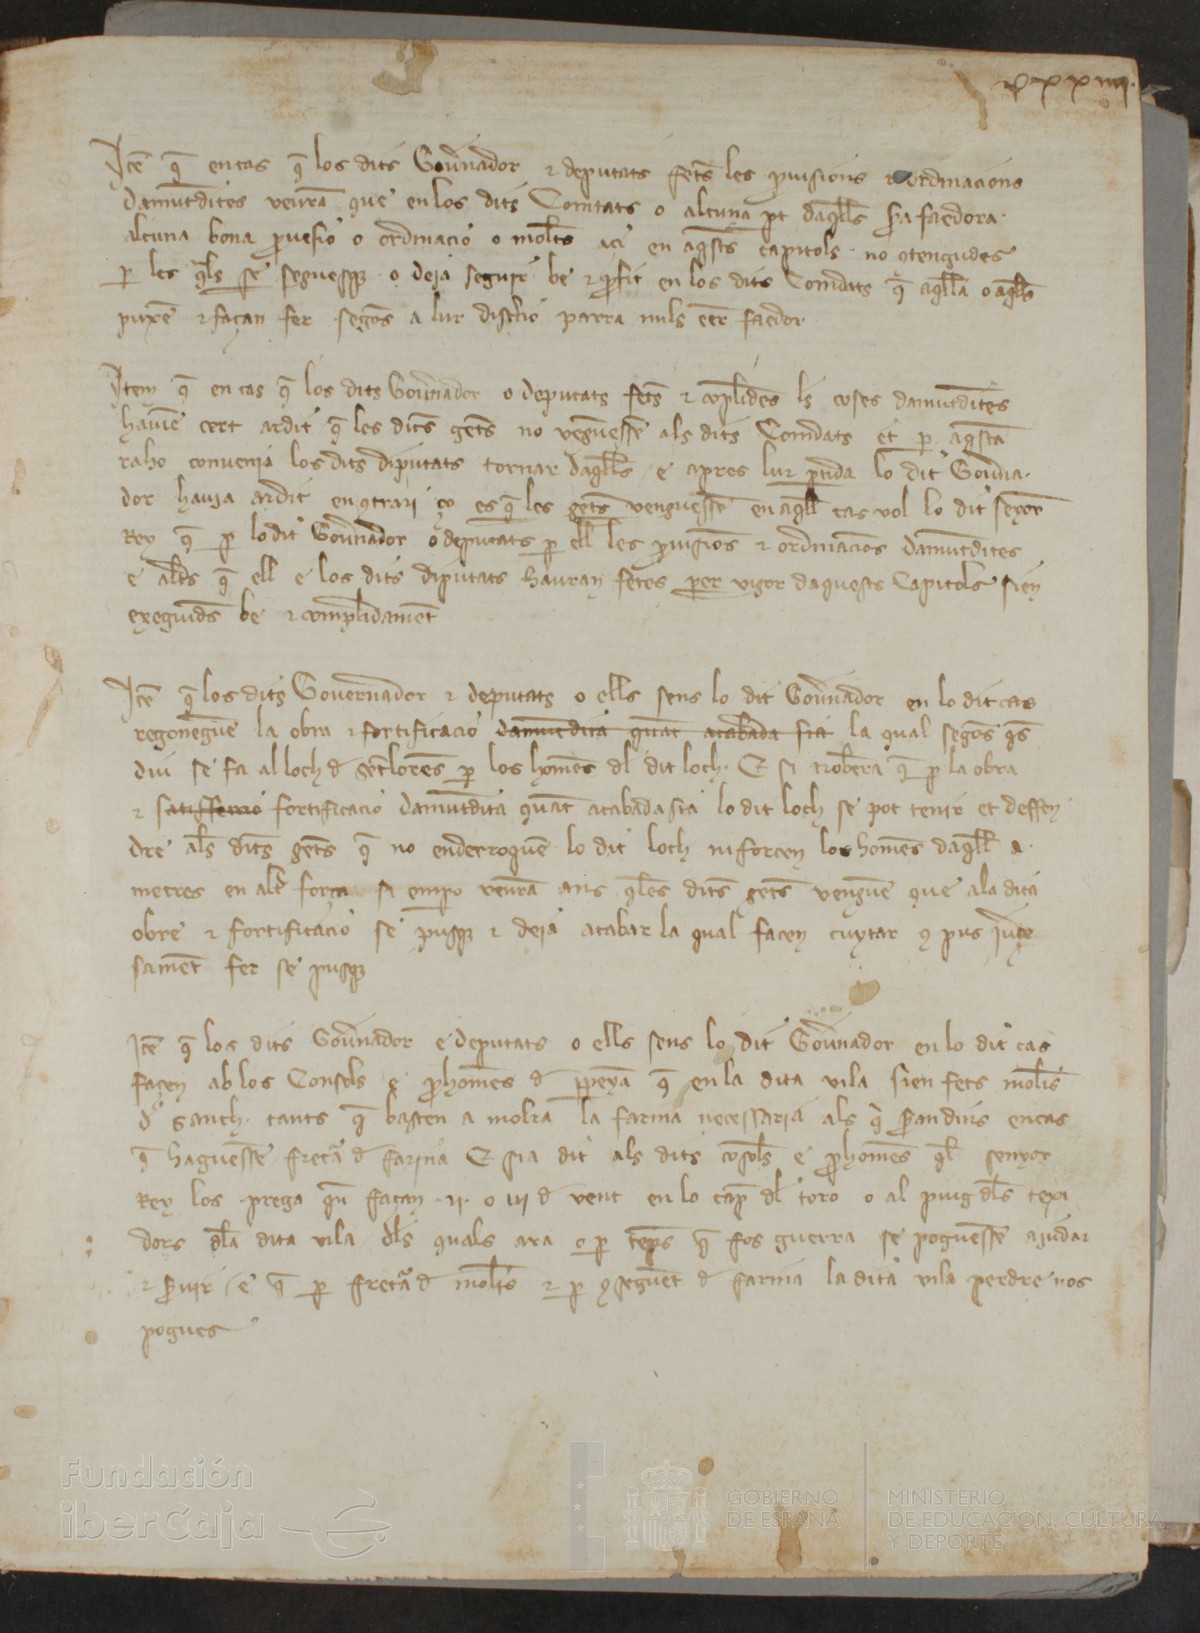 Itē q̄ en cas q̄ los dits Gou̅nador e deputats fets les ꝓuisions e ordinacions
damūtdites veurā que en los dits Comtats o alcuna pt daq̄lls sia faedora
alcuna bona ꝓuesio o ordinacio o molts aci en aq̄sts capitols no ɔtengudes
ꝑ les q̄ls se seguesqz o deja seguir be e ꝓfit en los dits Comdats q̄ aq̄lla o aq̄lls
puxē e façan fer segōs a lur discrecio parra mils eēr faedor
Item q̄ en cas q̄ los dits Gou̅nador o deputats fets e ɔplides ls coses damūtdites
hauiē cert ardit q̄ les dits gēts no vēguessē als dits Comdats et ꝑ aq̄sta
raho convenia los dits diputats tornar daq̄lls e apres lur ꝑtida lo dit Gou̅na
dor hauia ardit en ɔtrari ço es q̄ les gēts venguessē en aq̄ll cas vol lo dit seyor
Rey q̄ ꝑ lo dit Gou̅nador o deputats ꝑ ell les ꝓuisiōs e ordinaciōs damūtdites
e alts q̄ ell e los dits diputats hauran fetes per vigor daquests Capitols sien
exeguids be e complidamēt
Itē q̄ los dits Gouernador e deputats o ells sens lo dit Gou̅nador en lo dit cas
regoneguē la obra e fortificacio damūtdita quāt acabada sia la qual segōs
diu se fa al loch d sētlorēs ꝑ los homēs dl dit loch. E si trobera q̄ ꝑ la obra
e fortificacio damūtdita quāt acabada sia lo dit loch se pot tenir et deffen
dre als dits gēts q̄ no enderroquē lo dit loch ni forcen los homēs daq̄ll a
metres en alt̄ força si empo veurā ans q̄les dits gēts venguē que a la dita
obre e fortificacio se pusqz e deja acabar la qual facen cuytar ɔ pus
samēt fer se pusqz
Itē q̄ los dits Gou̅nador e deputats o ells sens lo dit Gou̅nador en lo dit cas
façen ab los Consols e ꝓhomēs d ꝑpeyā q̄ en la dita vila sien fets molīs
d sanch tants q̄ basten a molra la farina necessaria als q̄ seran dins en cas
q̄ haguessē fretura d farina E sia dit als dits cōsols e ꝓhomēs q̄l senyor
Rey los prega qn façan .ii. o iii d vent en lo cap dl toro o al puig dls texi
dors dla dita vila dls quals ara o ꝑ tēps q̄ fos guerra se poguessē ajudar
e seruir e q̄ ꝑ fretura d molīs e ꝑ ɔseguēt d farina la dita vila perdre nos
pogues
Fundación
iberCaja
GOBIERNO
DE ESPAÑA
MINISTERIO
DE EDUCACIÓN, CULTURA
Y DEPORTE